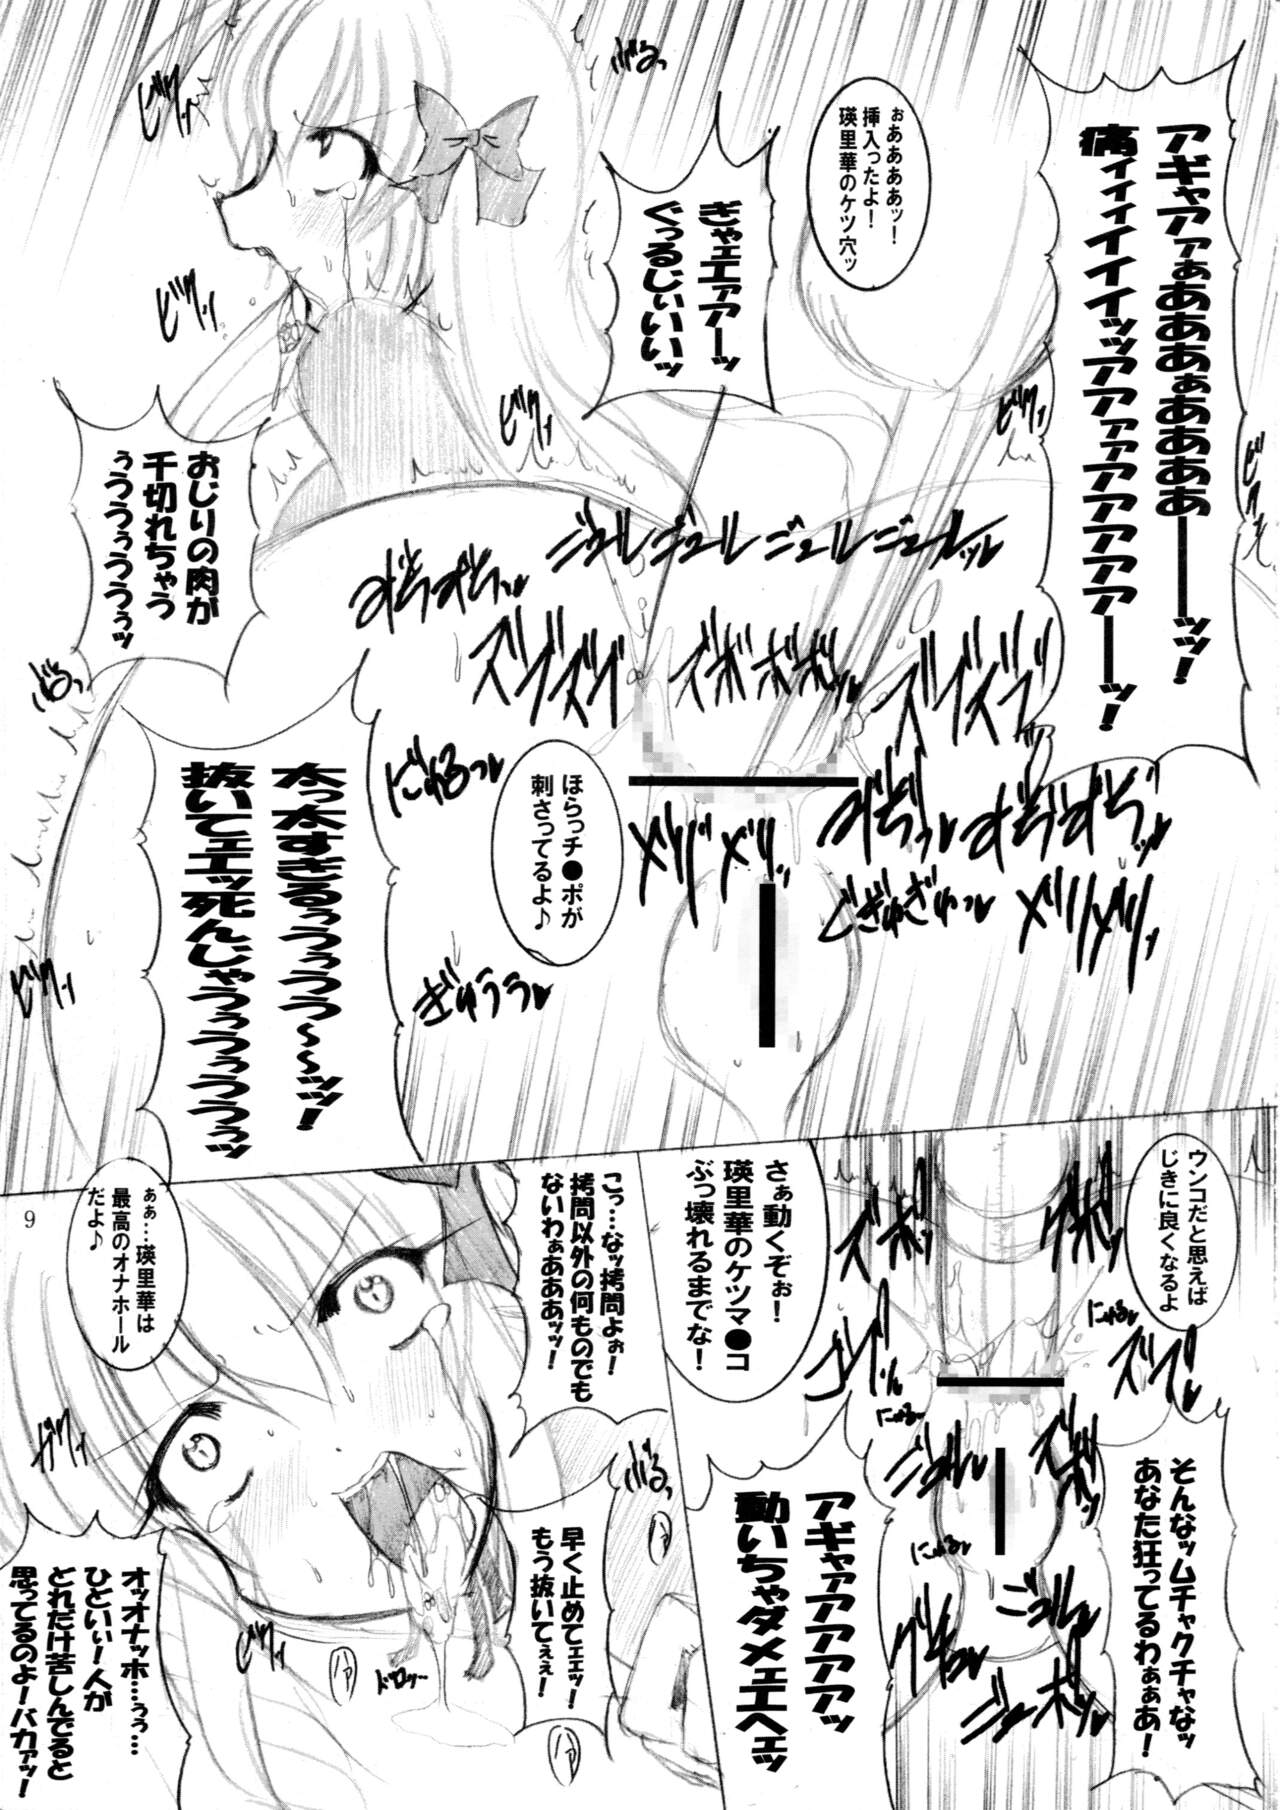 アギャアァぁあああぁあああああーーーッッ！
痛ィィィイイイイッッアアァァアアアアアァーーッ！
ぉああああッ！
挿入ったよ！
瑛里華のケツ穴ッ
ぎゃエエァアーッ
ぐっるじぃいいいッ
おじりの肉が
千切れちゃう
ぅうううぅうううぅッ
ほらっチ●ポが
刺さってるよ♪
太っ太すぎるぅうぅうう～～ッッ！
抜いてェエッ死んじゃうぅうぅうううぅッ
ウンコだと思えば
じきに良くなるよ
そんなッムチャクチャなッ
あなた狂ってるわぁぁあ！
さぁ動くぞぉ！
瑛里華のケツマ●コ
ぶっ壊れるまでな！
アギャァアアアアッ
動いちゃダメェエヘェッ
こっ…なッ拷問よぉ！
拷問以外の何ものでも
ないわぁあああッ！
早く止めてェエッ！
もう抜いてぇぇ！
ぁぁ…瑛里華は
最高のオナホール
だよ♪
オッオナッホ…ぅぅ…
ひどいぃー人が
どれだけ苦しんでると
思ってるのよーバカァッ！
ビクッ
ビクッ
ビクッ
ぶるっ
ビクッ
ビクッ
ジュルジュルジュルジュルッ
ズブズブ
ズボボボッ
ズブズブッ
にゅるっ
メリメリッ
メリメリッ
ぎゅうう
ズボッ
グボッ
にゅるっ
ズブッ
にゅるっ
ジュルッ
ズボッ
にゅるっ
ジュルッ
グチャッ
ジュボッ
ガクッ
ぶるっ
ビクッ
ハァ
ハァ
ハァ
ドロッ…
9